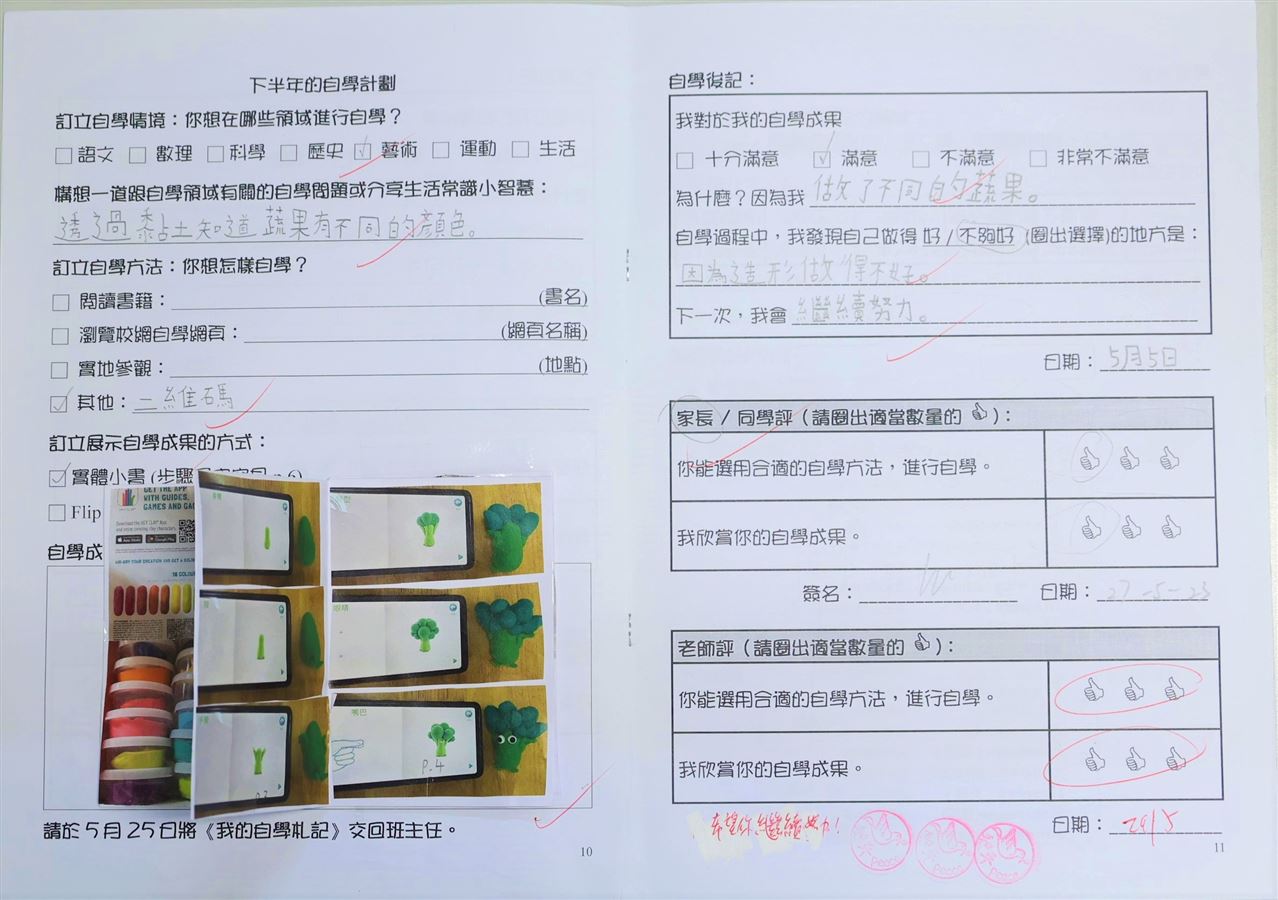 下半年的自學計劃
訂立自學情境：你想在哪些領域進行自學？
□語文 □數理 □科學 □歷史 ☑藝術 □運動 □生活
構想一道跟自學領域有關的自學問題或分享生活常識小智慧：
透過黏土知道蔬果有不同的顏色。
訂立自學方法：你想怎樣自學？
□ 閱讀書籍：(書名)
□ 瀏覽校網自學網頁：(網頁名稱)
□ 實地參觀：(地點)
☑ 其他：二維碼
訂立展示自學成果的方式：
☑ 實體小書 (步驟
□ Flip
自學成
GET THE APP
WITH GUIDES,
GAMES AND
眼睛
嘴巴
P.4
請於5月25日將《我的自學札記》交回班主任。
10
自學後記：
我對於我的自學成果
□ 十分滿意 ☑ 滿意 □ 不滿意 □ 非常不滿意
為什麼？因為我 做了不同的蔬果。
自學過程中，我發現自己做得 好 / 不夠好 (圈出選擇)的地方是：
因為造形做得不好。
下一次，我會 繼續努力。
日期：5月5日
家長 / 同學評（請圈出適當數量的 👍）：
你能選用合適的自學方法，進行自學。 👍 👍 👍
我欣賞你的自學成果。 👍 👍 👍
簽名： 日期：27-5-23
老師評（請圈出適當數量的 👍）：
你能選用合適的自學方法，進行自學。 👍 👍 👍
我欣賞你的自學成果。 👍 👍 👍
希望你繼續努力！
Peace Peace Peace
日期：29/5
11